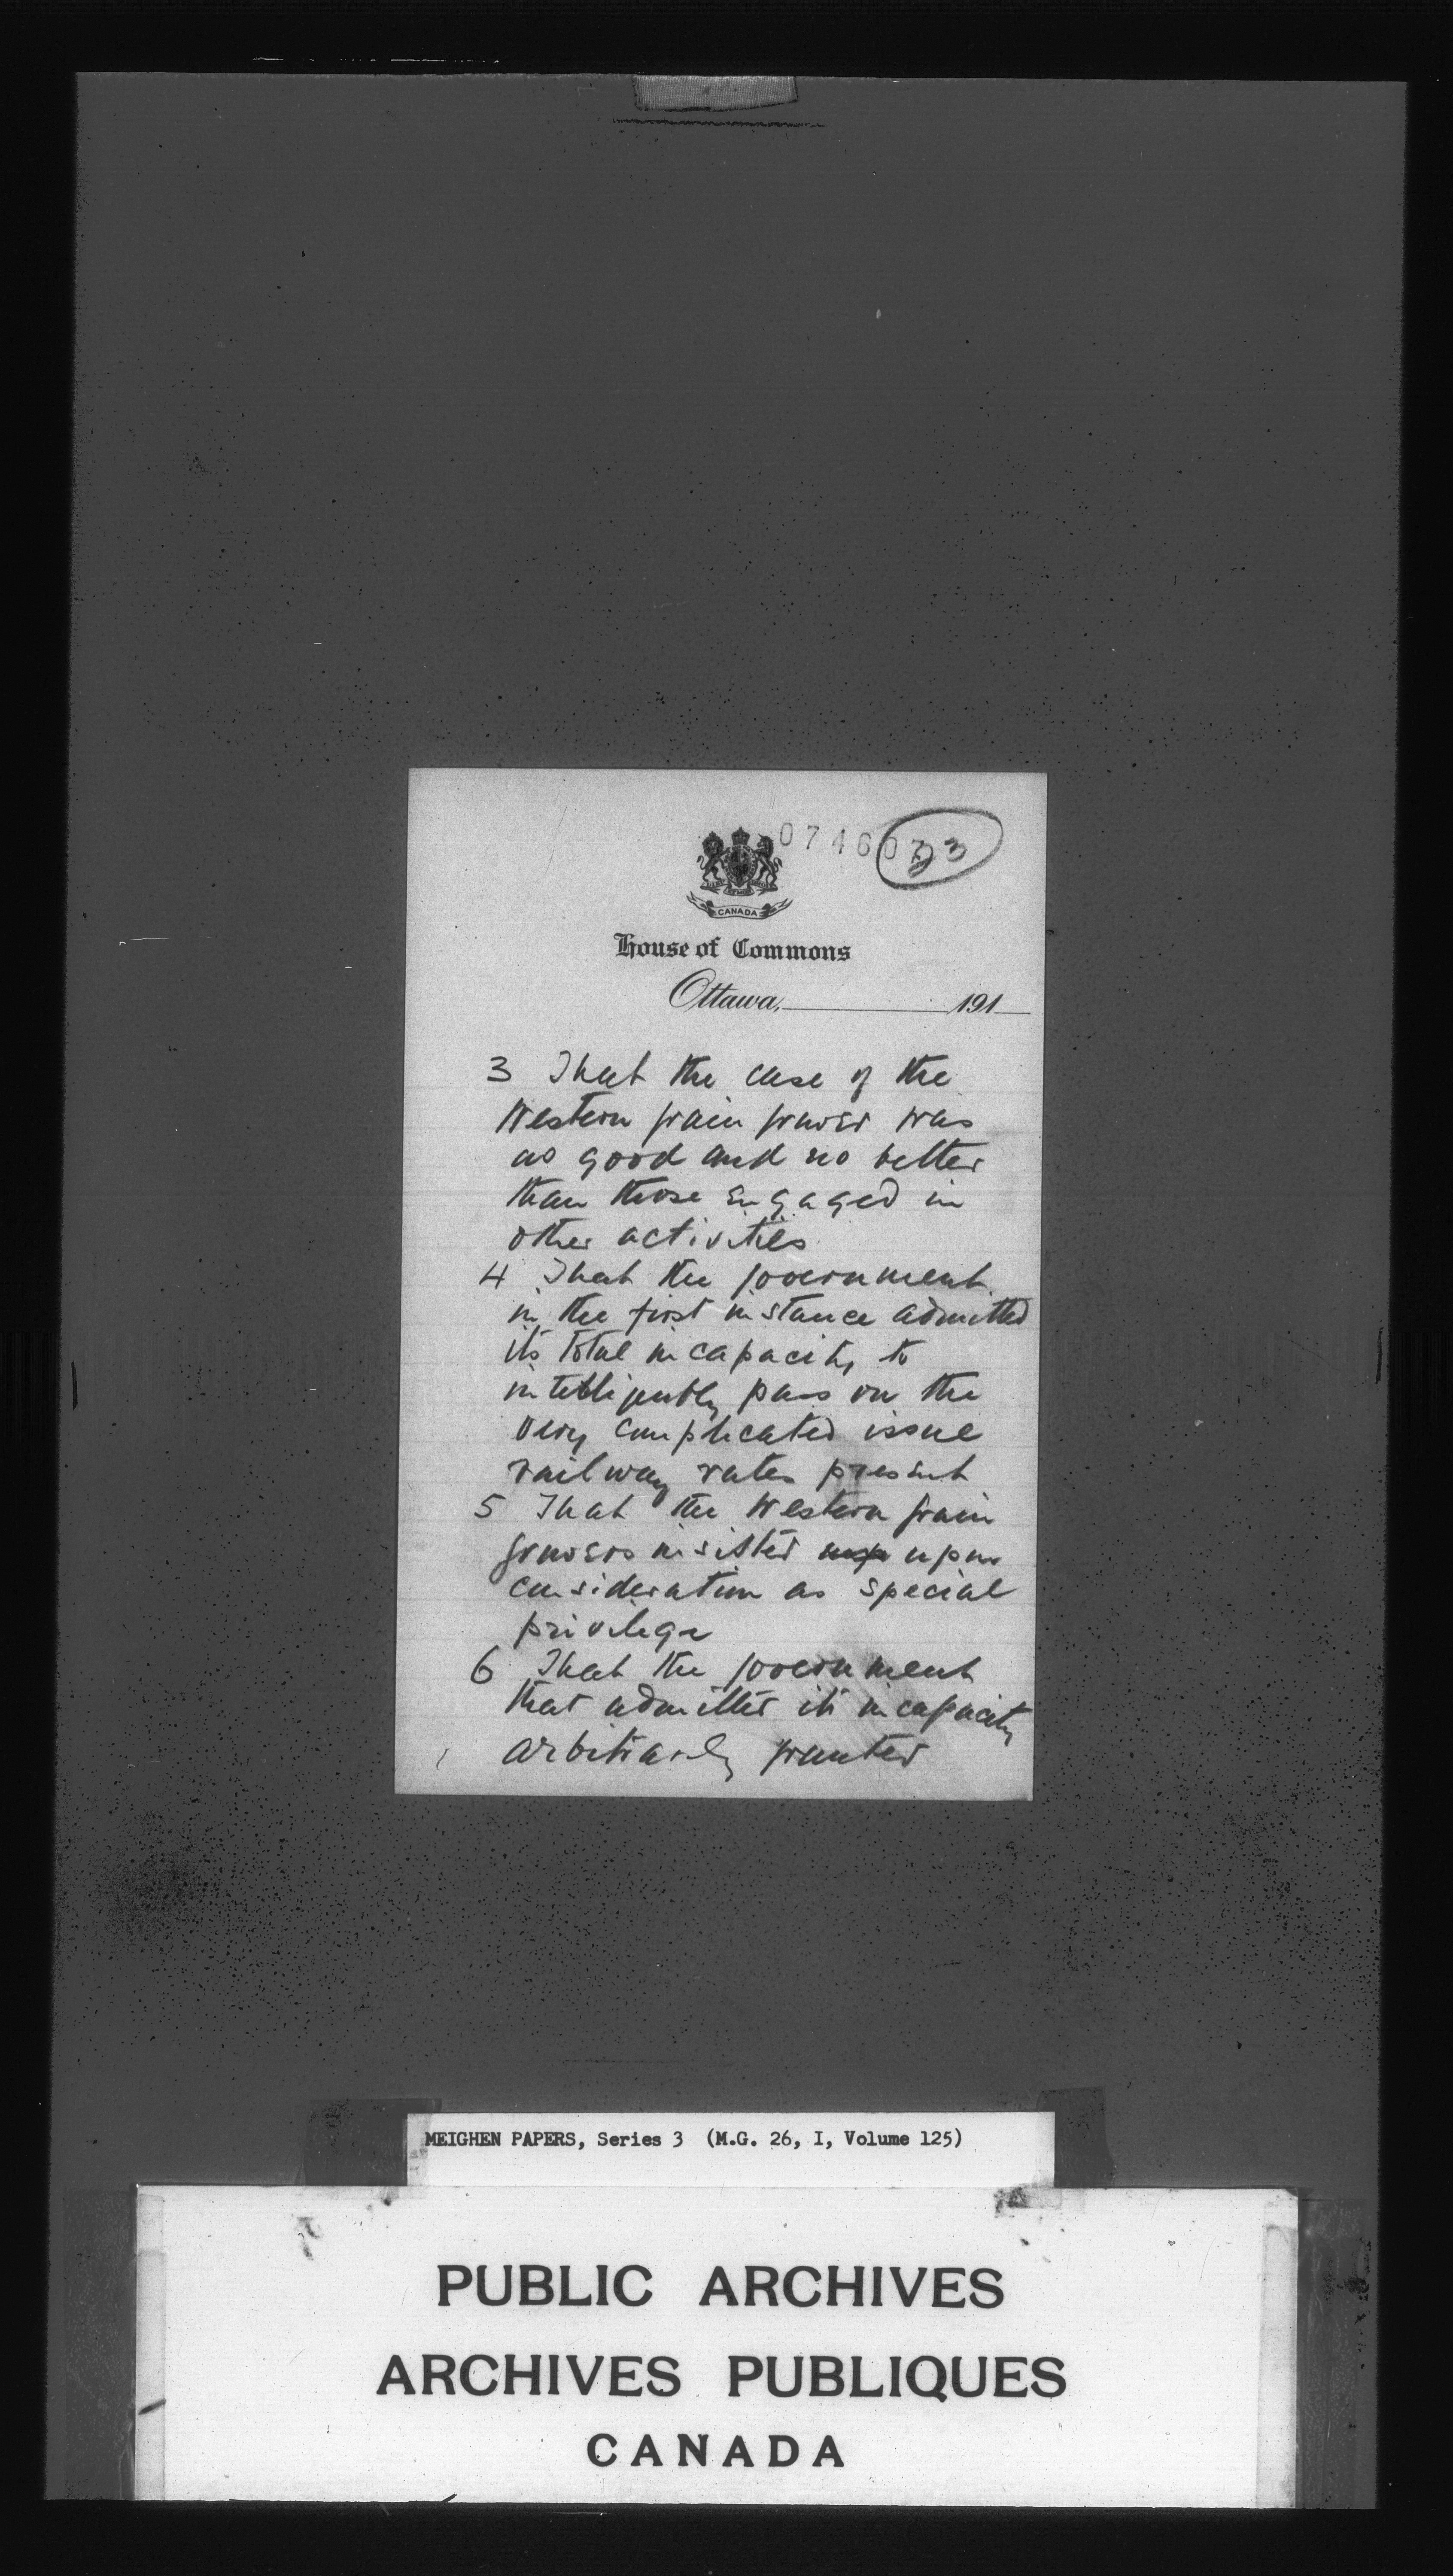 074607
33
CANADA
House of Commons
Ottawa, 191
3 That the case of the
Western grain grower was
as good and no better
than those engaged in
other activities
4 That the government
in the first instance admitted
its total incapacity to
intelligently pass on the
very complicated issue
railway rates present
5 That the Western grain
growers insisted upon
consideration as special
privilege
6 That the government
that admitted its incapacity
arbitrarily granted
MEIGHEN PAPERS, Series 3 (M.G. 26, I, Volume 125)
PUBLIC ARCHIVES
ARCHIVES PUBLIQUES
CANADA